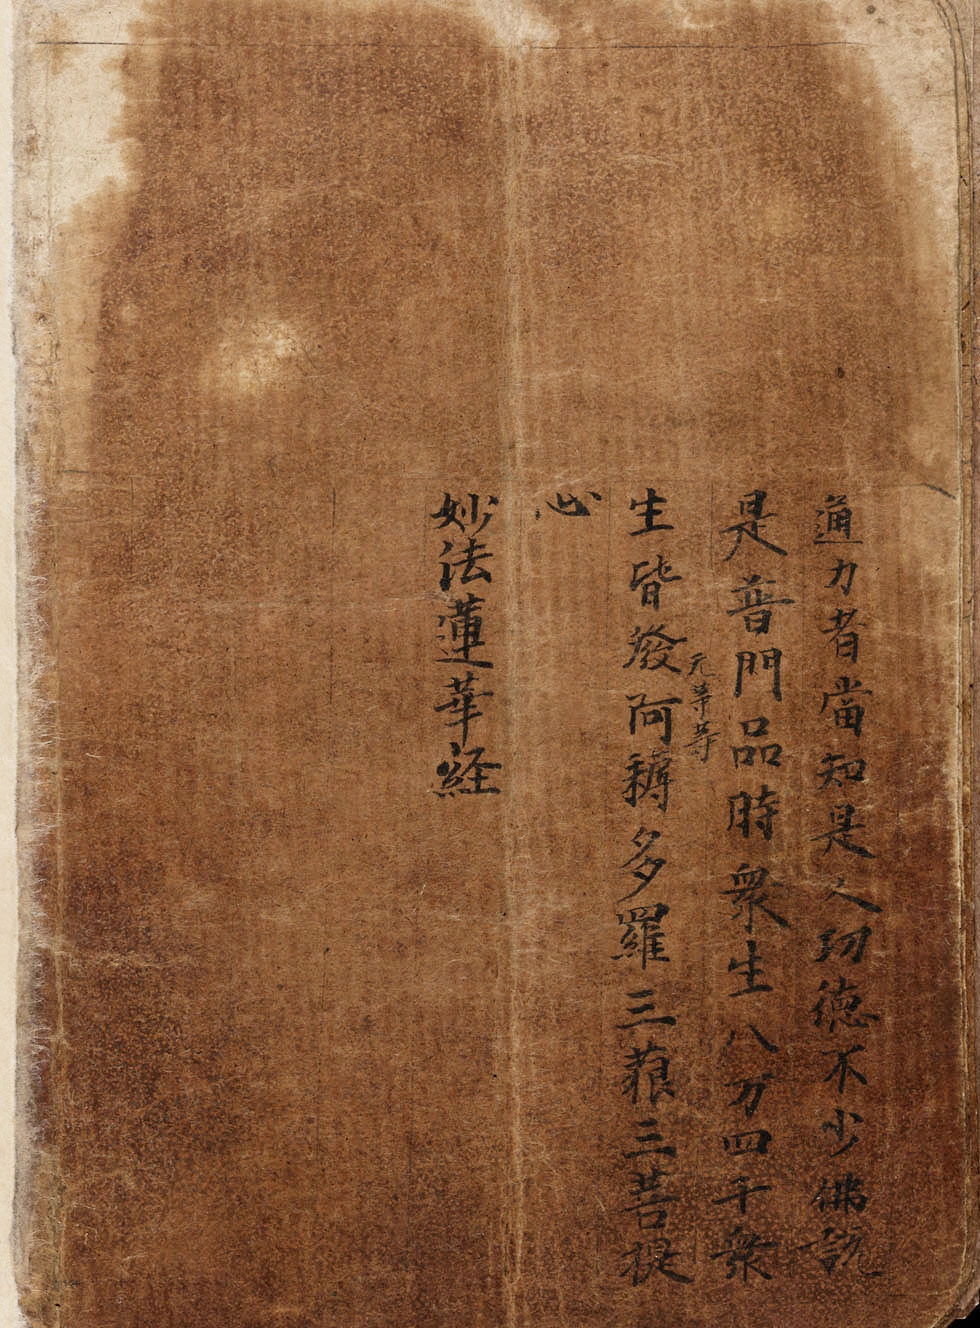 通力者當知是人功德不少佛說
是普門品時衆生八万四千衆
元等等
生皆發阿耨多羅三藐三菩提
心
妙法蓮華経